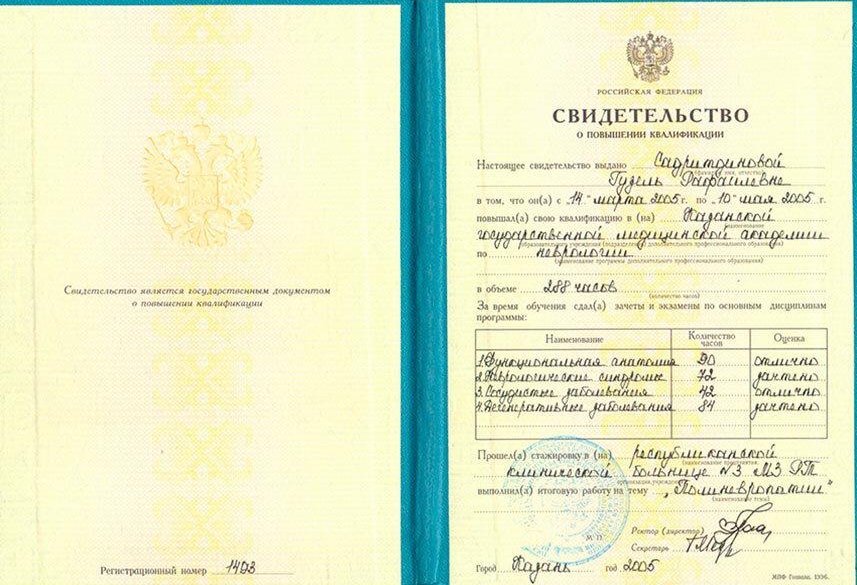 Свидетельство является государственным документом
о повышении квалификации
Регистрационный номер 1403
РОССИЙСКАЯ ФЕДЕРАЦИЯ
СВИДЕТЕЛЬСТВО
О ПОВЫШЕНИИ КВАЛИФИКАЦИИ
Настоящее свидетельство выдано Садритдиновой
(фамилия, имя, отчество)
Гузель Рафаиловне
в том, что он(а) с „14" марта 2005 г. по „10" мая 2005 г.
повышал(а) свою квалификацию в (на) Казанской
(наименование
государственной медицинской академии
образовательного учреждения (подразделения) дополнительного профессионального образования)
по неврологии
(наименование программы дополнительного профессионального образования)
в объеме 288 часов
(количество часов)
За время обучения сдал(а) зачеты и экзамены по основным дисциплинам
программы:
Наименование Количество часов Оценка
1. Функциональная анатомия 90 отлично
2. Неврологические синдромы 72 зачтено
3. Сосудистые заболевания 42 отлично
4. Дегенеративные заболевания 84 зачтено
Прошел(а) стажировку в (на) республиканской
(наименование предприятия,
клинической больнице N3 МЗ РТ
организации, учреждения)
выполнил(а) итоговую работу на тему „Полиневропатии"
(наименование темы)
Ректор (директор)
М П
Секретарь
Город Казань год 2005
МПФ Гознака. 1996.